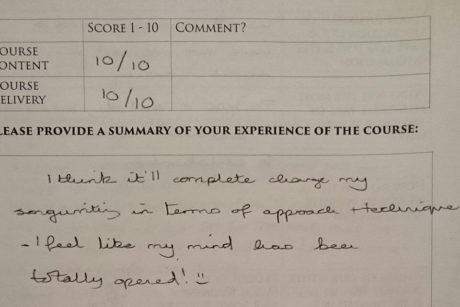 SCORE 1 - 10 COMMENT?
OURSE
ONTENT 10/10
OURSE
ELIVERY 10/10
EASE PROVIDE A SUMMARY OF YOUR EXPERIENCE OF THE COURSE:
I think it'll complete change my
songwriting in terms of approach + technique
- I feel like my mind has been
totally opened!